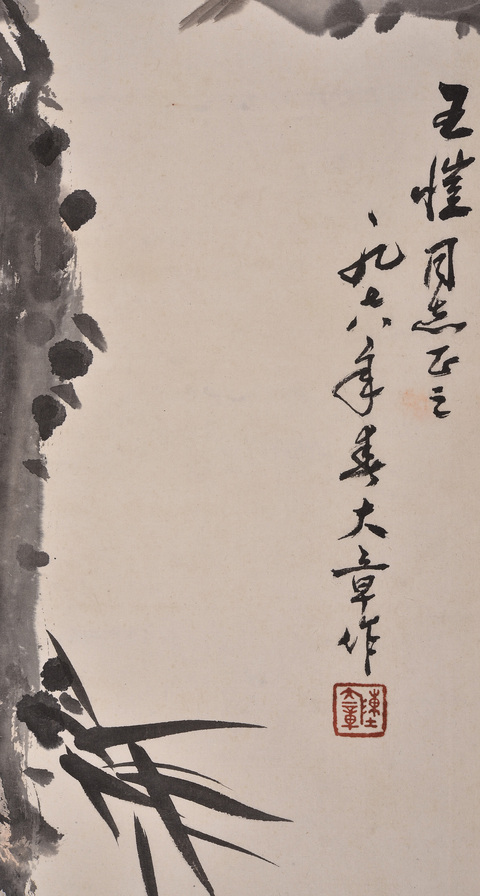 王愷同志正之
一九七八年春大章作
陳大章